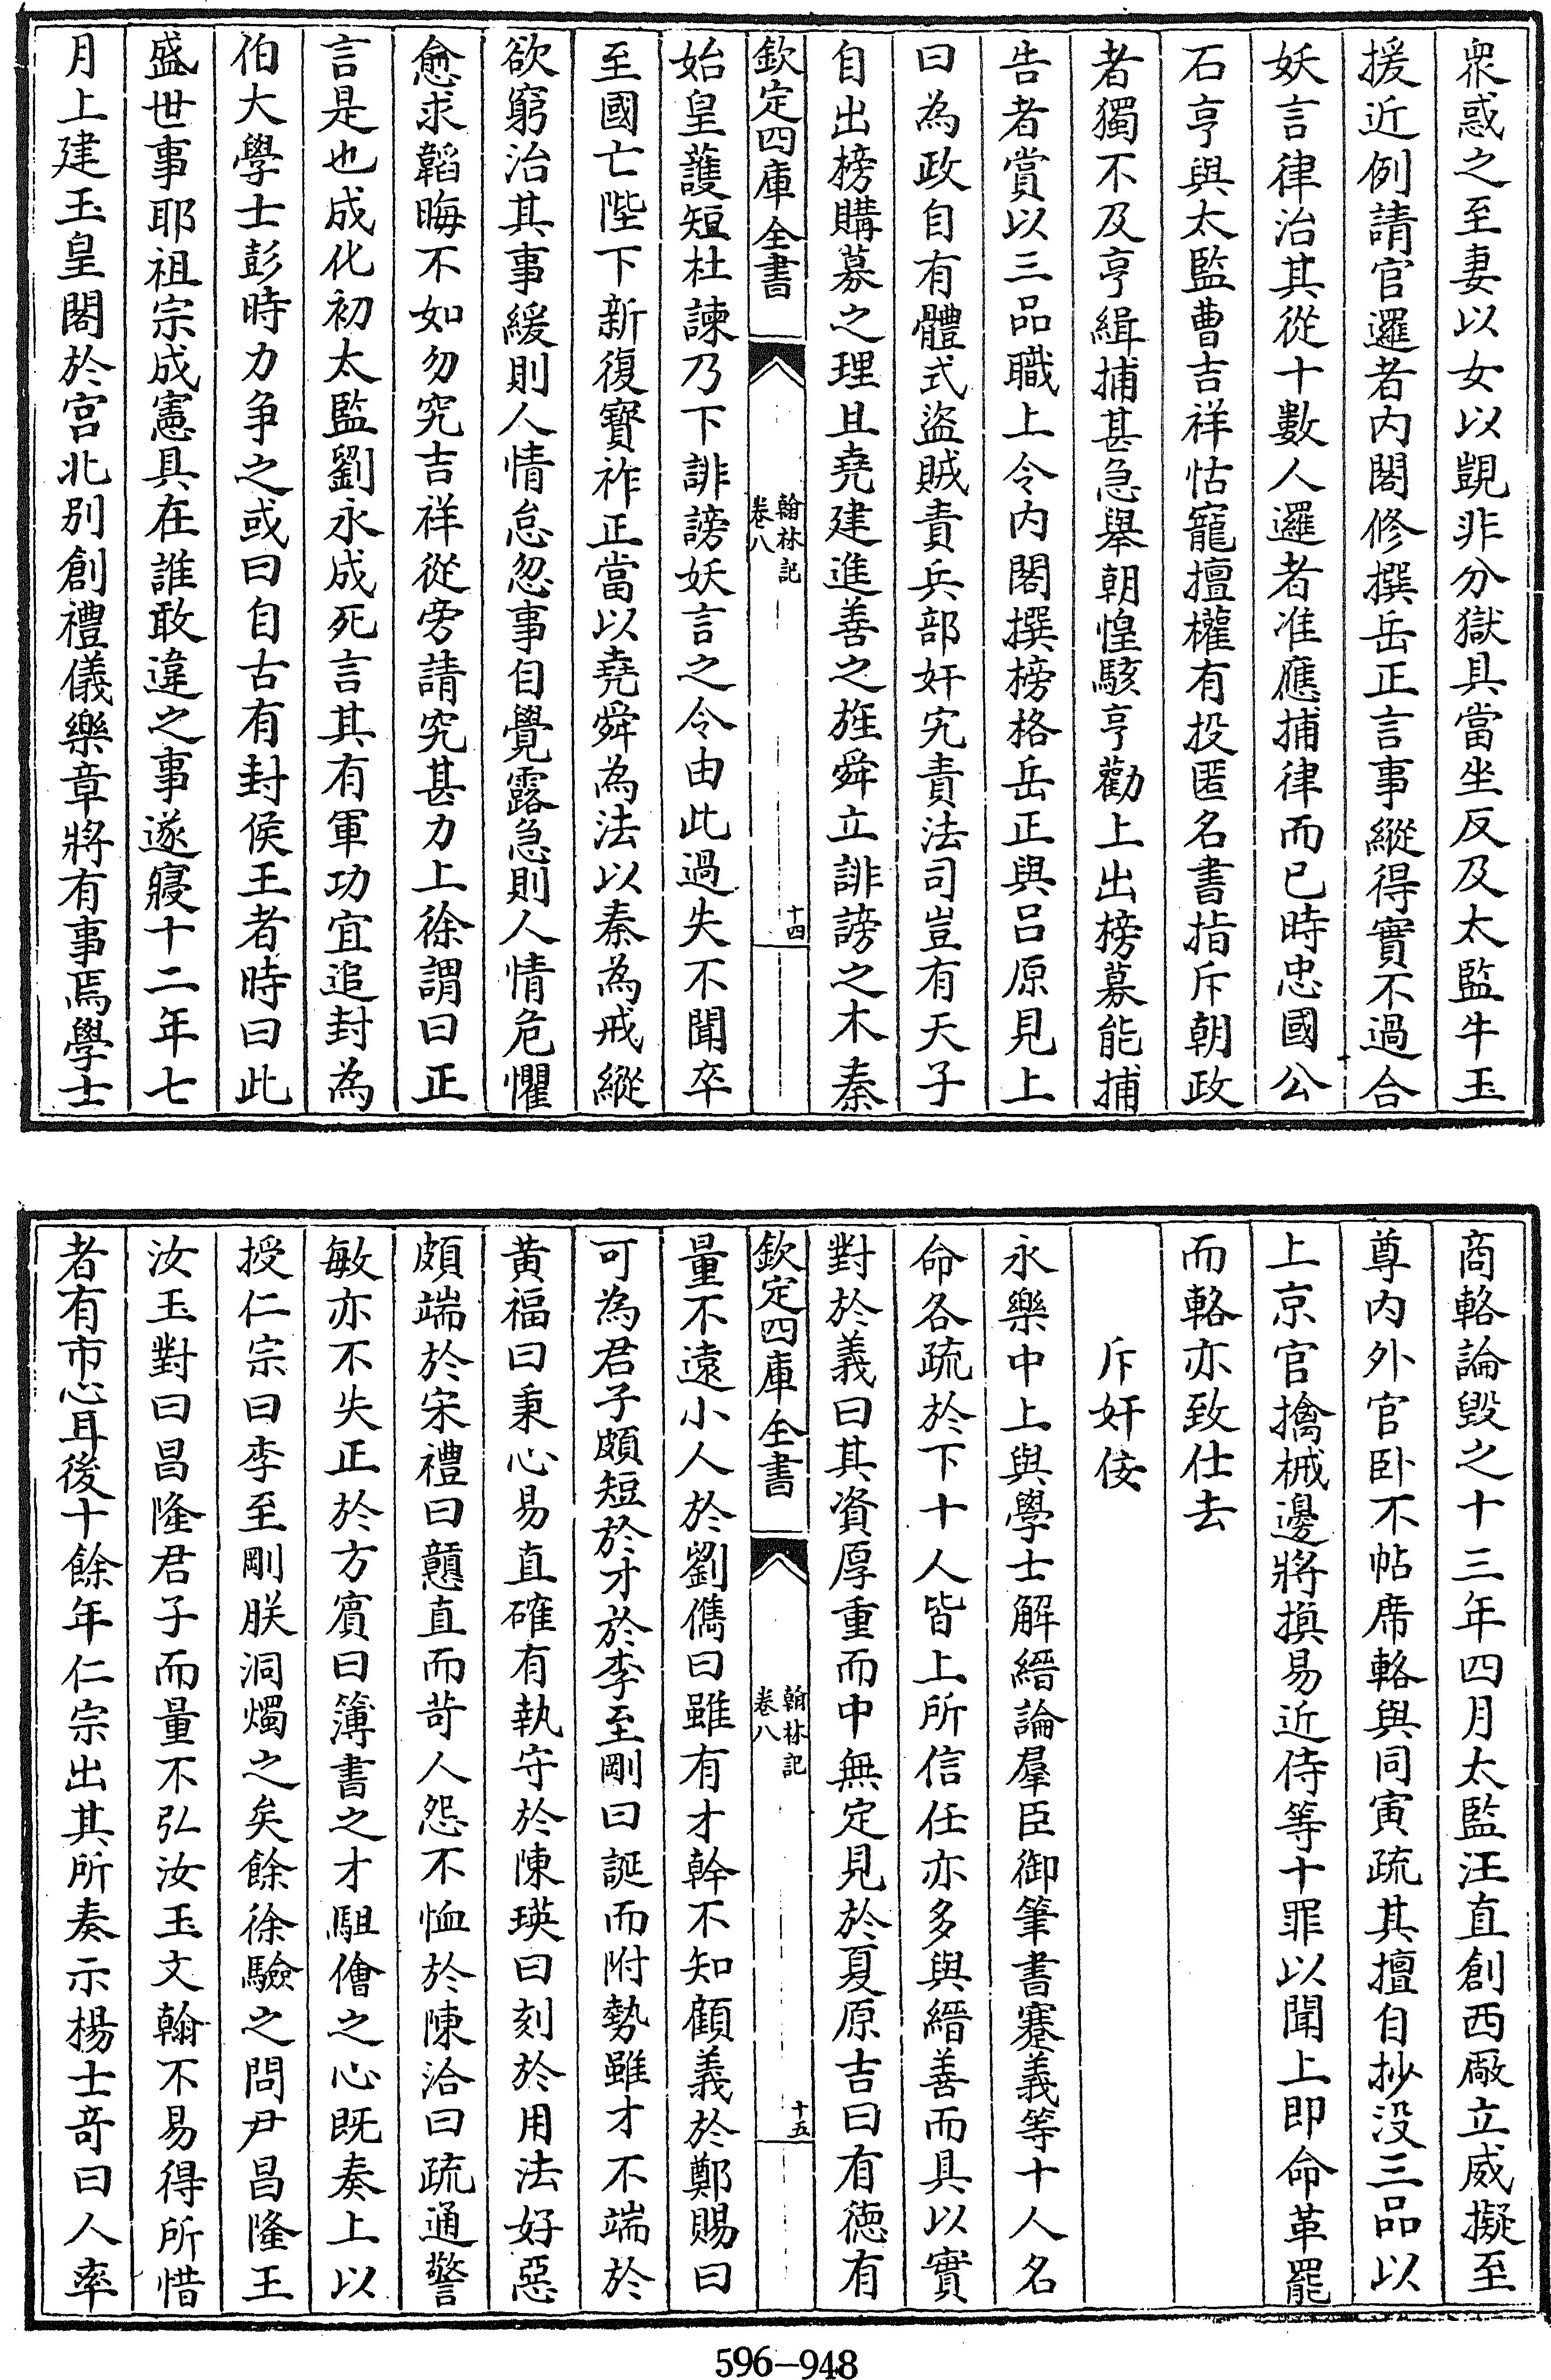 衆惑之至妻以女以覬非分獄具當坐反及太監牛玉
援近例請官邏者内閣修撰岳正言事縱得實不過合
妖言律治其從十數人邏者准應捕律而已時忠國公
石亨與太監曹吉祥怙寵擅權有投匿名書指斥朝政
者獨不及亨緝捕甚急舉朝惶駭亨勸上出榜募能捕
告者賞以三品職上令内閣撰榜格岳正與吕原見上
曰為政自有體式盜賊責兵部奸宄責法司豈有天子
自出榜購募之理且堯建進善之旌舜立誹謗之木秦
欽定四庫全書
翰林記
卷八
十四
始皇䕶短杜諫乃下誹謗妖言之令由此過失不聞卒
至國亡陛下新復寳祚正當以堯舜為法以秦為戒縱
欲窮治其事緩則人情怠忽事自覺露急則人情危懼
愈求韜晦不如勿究吉祥從旁請究甚力上徐謂曰正
言是也成化初太監劉永成死言其有軍功宜追封為
伯大學士彭時力争之或曰自古有封侯王者時曰此
盛世事耶祖宗成憲具在誰敢違之事遂寢十二年七
月上建玉皇閣於宫北别創禮儀樂章將有事焉學士
商輅論毀之十三年四月太監汪直創西厰立威擬至
尊内外官卧不帖席輅與同寅疏其擅自抄没三品以
上京官擒械邊將㨂易近侍等十罪以聞上即命革罷
而輅亦致仕去
斥奸佞
永樂中上與學士解縉論羣臣御筆書蹇義等十人名
命各疏於下十人皆上所信任亦多與縉善而具以實
對於義曰其資厚重而中無定見於夏原吉曰有徳有
欽定四庫全書
翰林記
卷八
十五
量不遠小人於劉儁曰雖有才幹不知顧義於鄭賜曰
可為君子頗短於才於李至剛曰誕而附勢雖才不端於
黄福曰秉心易直確有執守於陳瑛曰刻於用法好惡
頗端於宋禮曰戇直而苛人怨不恤於陳洽曰疏通警
敏亦不失正於方賔曰簿書之才駔儈之心既奏上以
授仁宗曰李至剛朕洞燭之矣餘徐驗之問尹昌隆王
汝玉對曰昌隆君子而量不弘汝玉文翰不易得所惜
者有市心耳後十餘年仁宗出其所奏示楊士竒曰人率
596-948